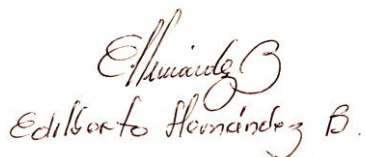 EHernández B
Edilberto Hernández B.